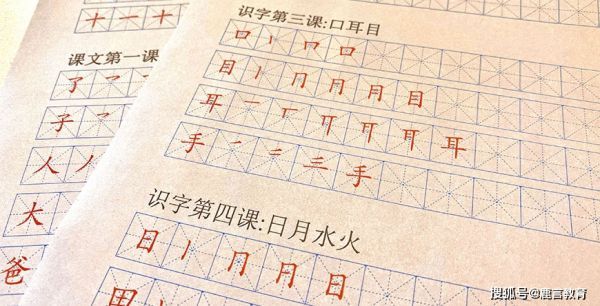 十 一 十
课文第一课
了 ㇇ 了
子 ㇇ 了
人 丿
大
爸
识字第三课:口耳目
口 丨 冂 口
目 丨 冂 月 月 目
耳 一 丅 丌 耳
手 ㇒ 二 三 手
识字第四课:日月水火
日 丨 冂 月 日
搜狐号@鹿言教育